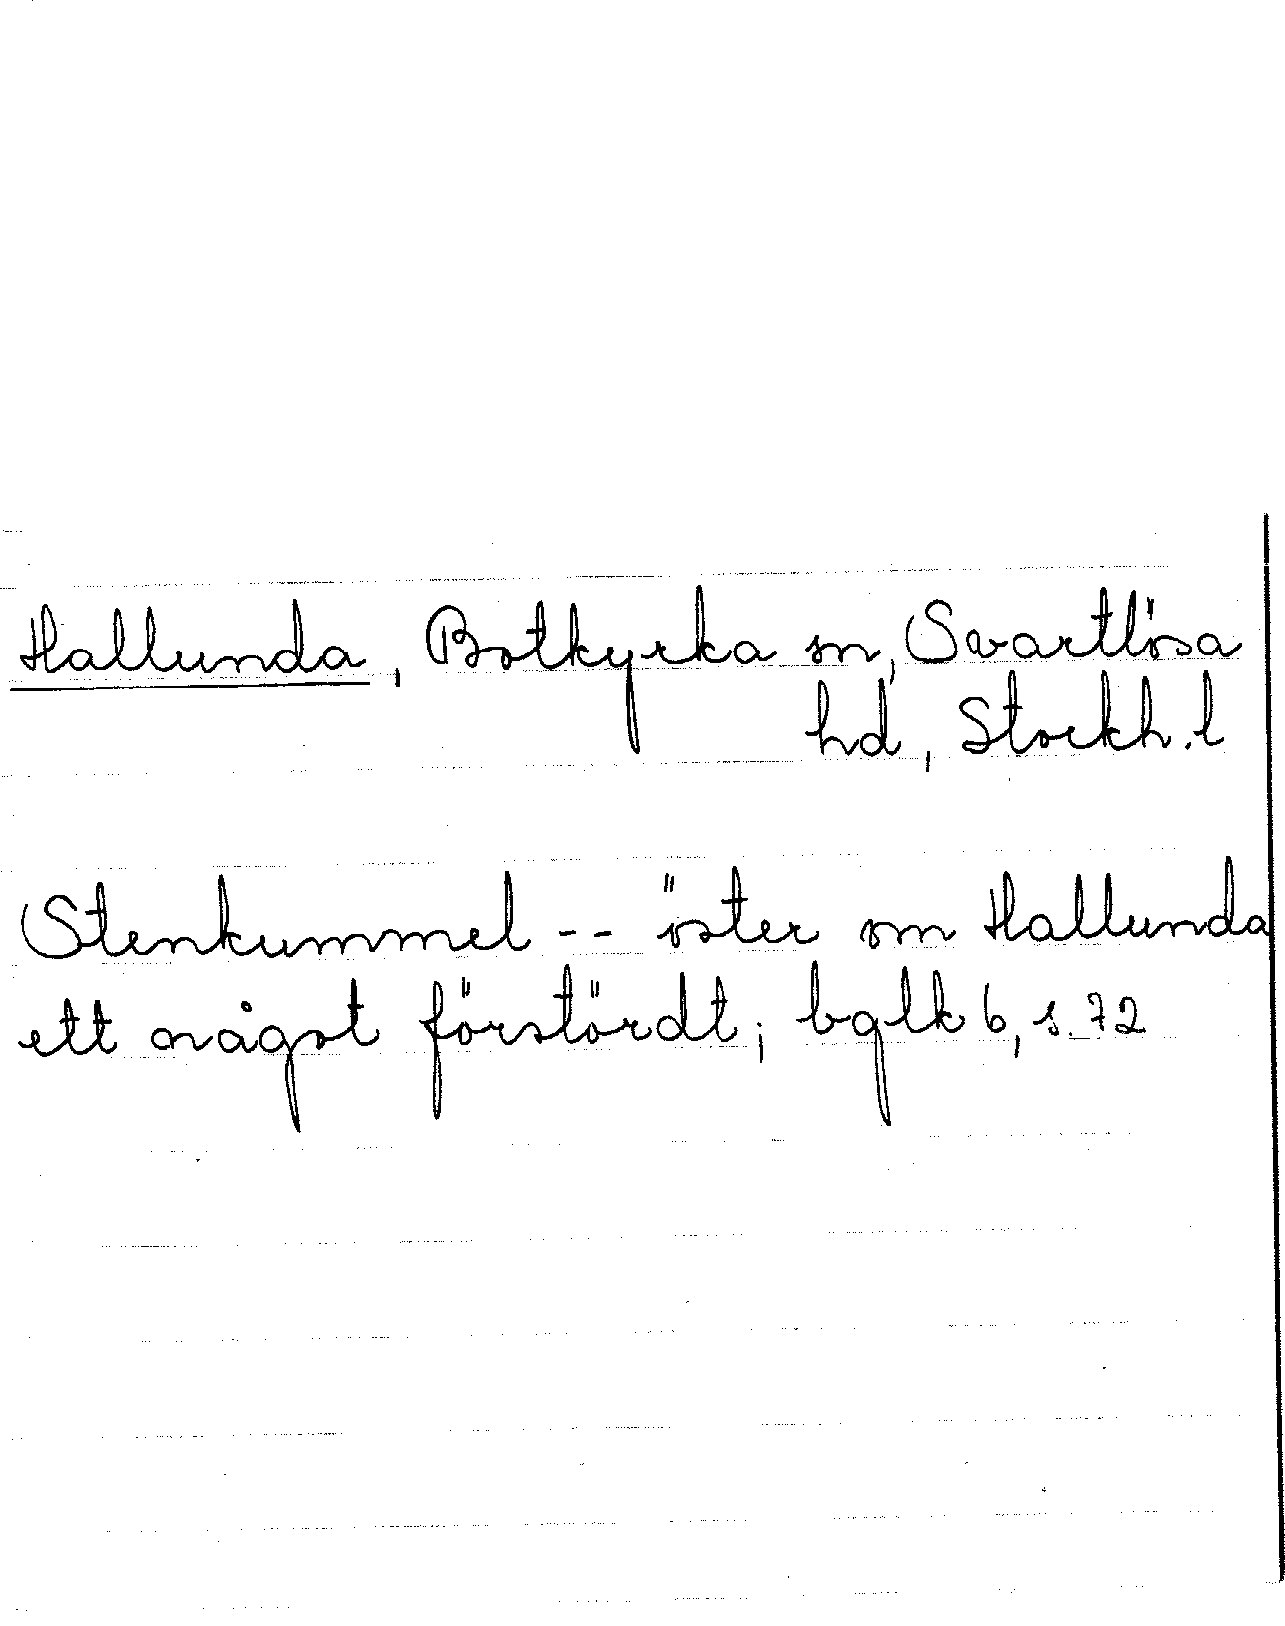 Hallunda, Botkyrka sn, Svartlösa
hd, Stockh.l
Stenkummel -- öster om Hallunda
ett något förstördt; bglk 6, s. 72